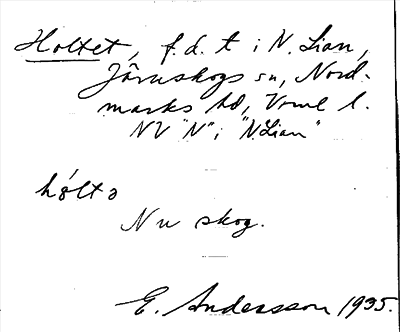 Holtet, f.d. t i N. Lian,
Järnskogs sn, Nord-
marks hd, Vrml l.
NV "N" i "N Lian"
hólta
Nu skog.
E. Andersson 1935.